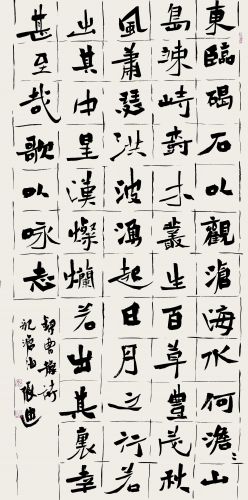 東臨碣石以觀滄海水何澹〻山
島竦峙樹木叢生百草豐茂秋
風蕭瑟洪波湧起日月之行若
出其中星漢燦爛若出其裏幸
甚至哉歌以咏志
錄曹操詩
觀滄海